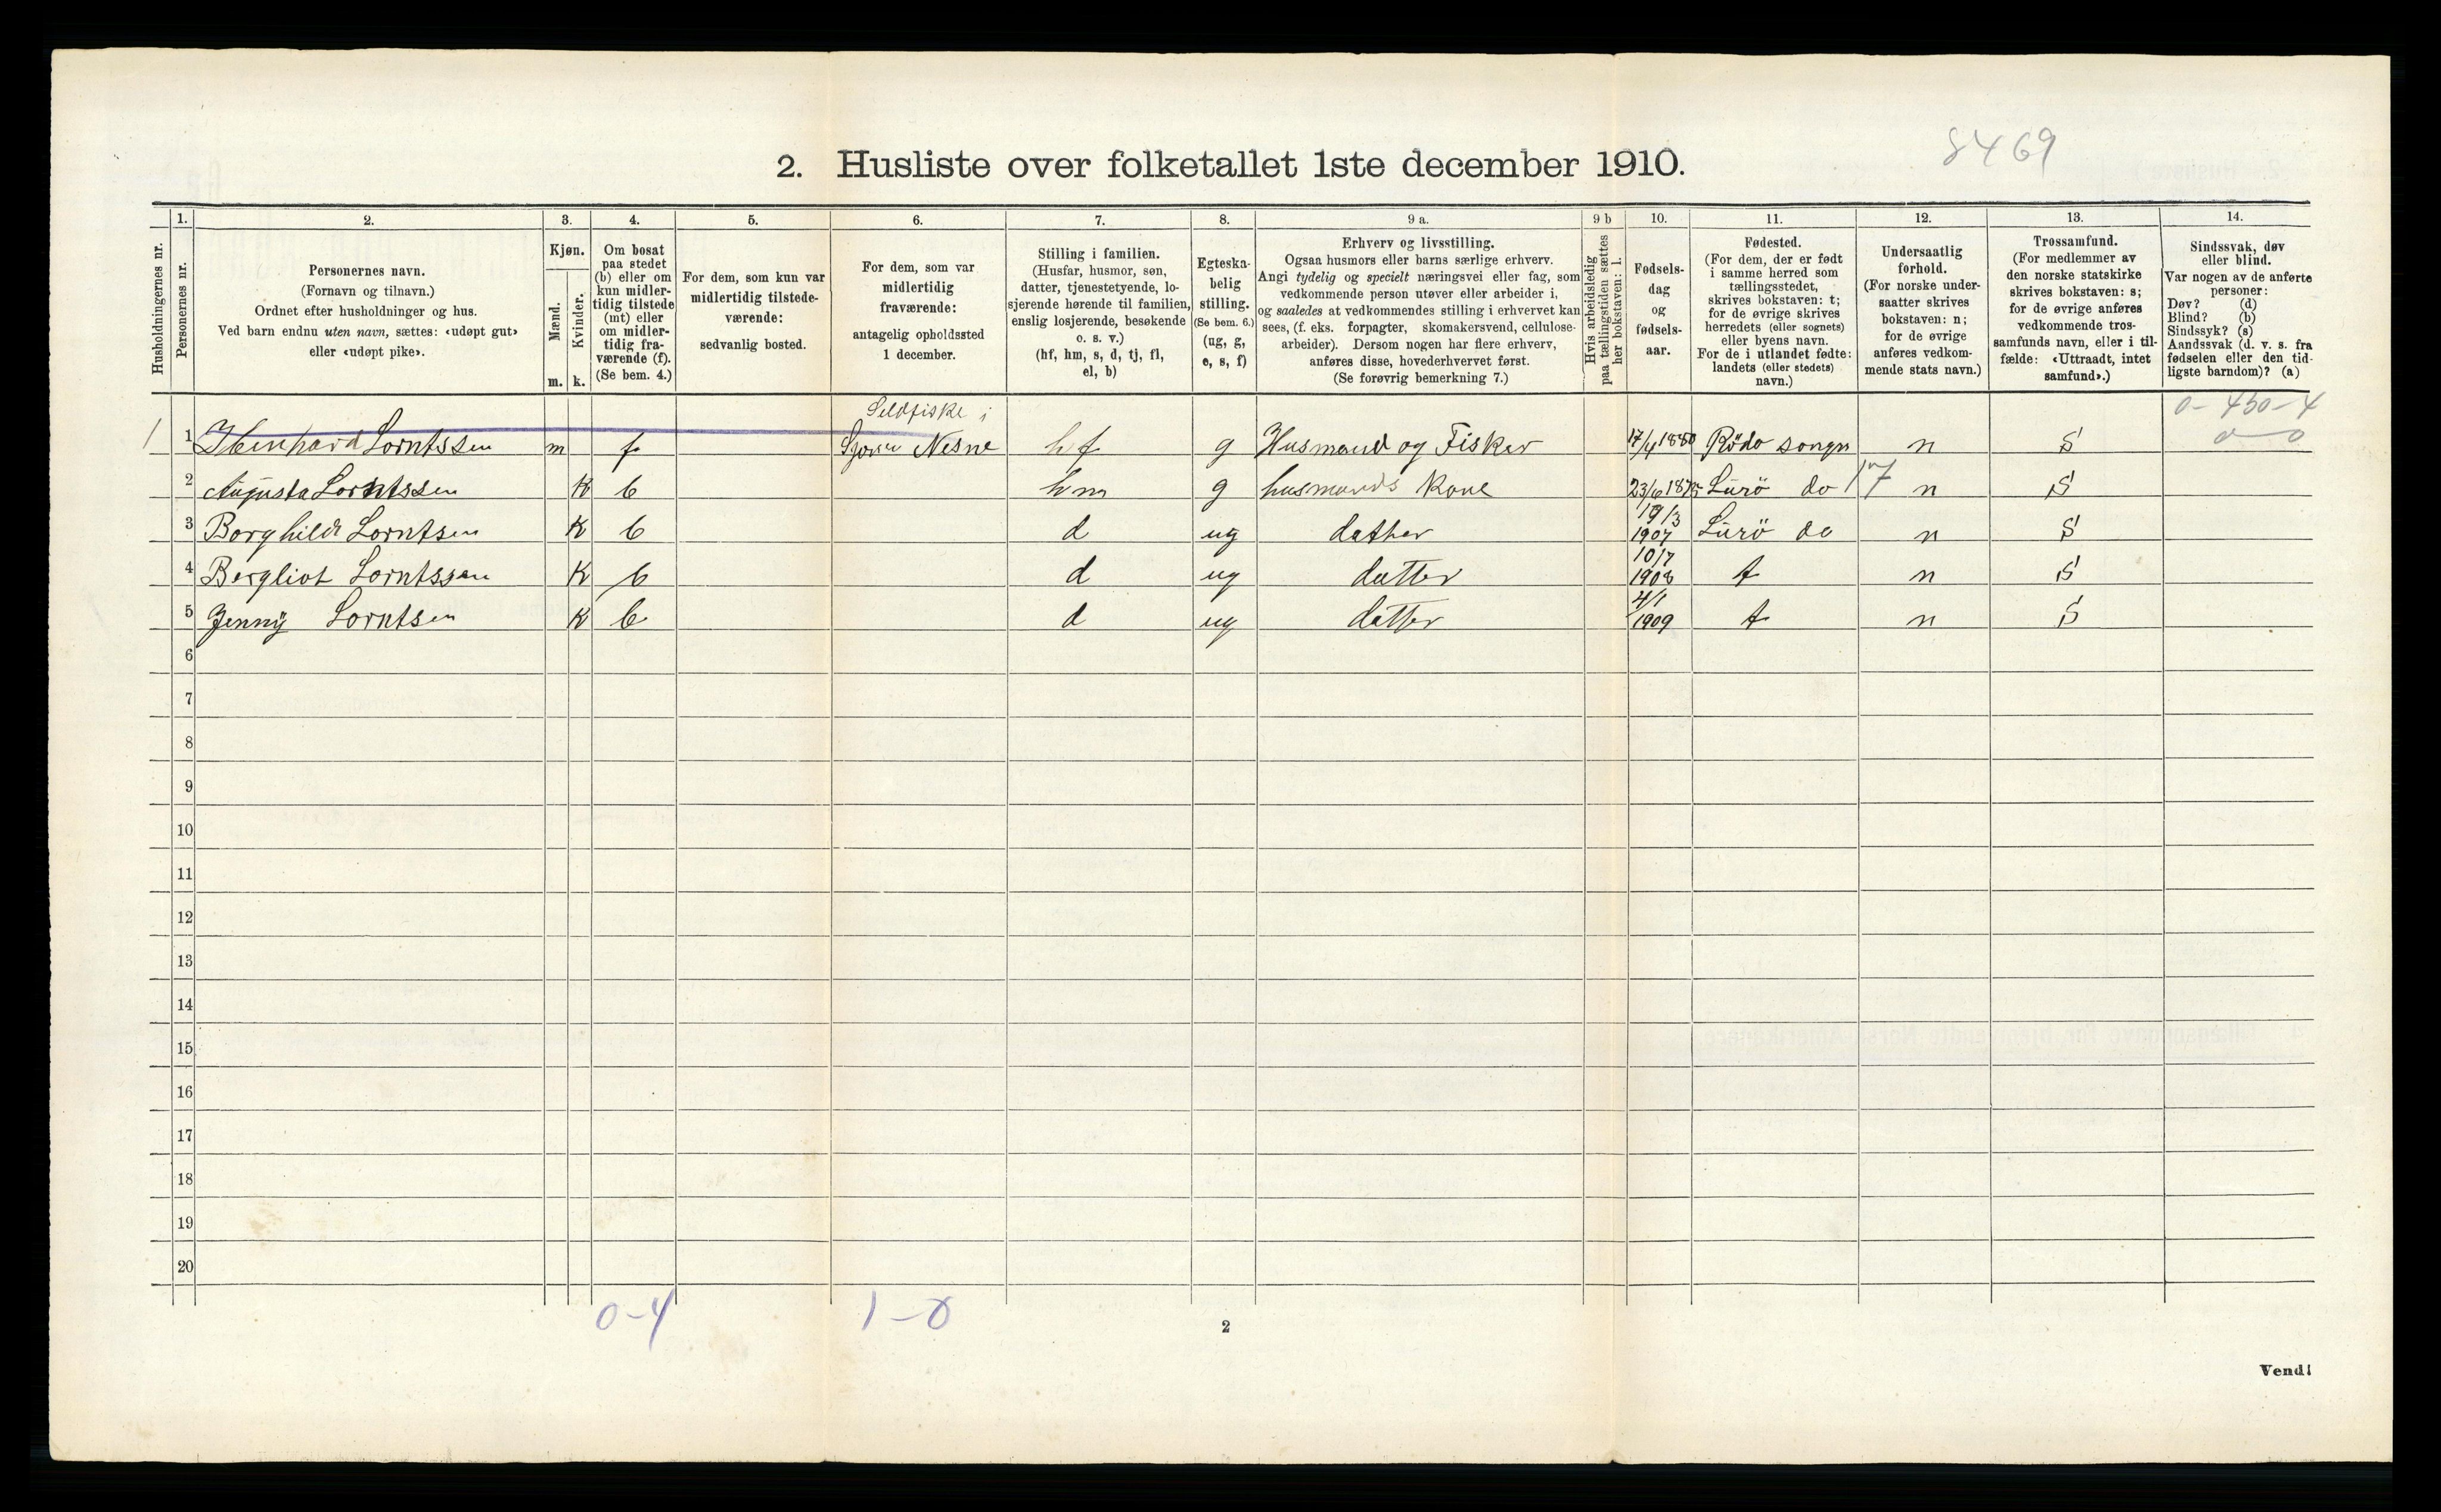 8469
2. Husliste over folketallet 1ste december 1910.
Husholdningernes nr.
1.
Personernes nr.
2.
Personernes navn.
(Fornavn og tilnavn.)
Ordnet efter husholdninger og hus.
Ved barn endnu uten navn, sættes: «udøpt gut»
eller «udøpt pike».
3.
Kjøn.
Mænd.
Kvinder.
m. k.
4.
Om bosat
paa stedet
(b) eller om
kun midler-
tidig tilstede
(mt) eller
om midler-
tidig fra-
værende (f).
(Se bem. 4.)
5.
For dem, som kun var
midlertidig tilstede-
værende:
sedvanlig bosted.
6.
For dem, som var
midlertidig
fraværende:
antagelig opholdssted
1 december.
7.
Stilling i familien.
(Husfar, husmor, søn,
datter, tjenestetyende, lo-
sjerende hørende til familien,
enslig losjerende, besøkende
o. s. v.)
(hf, hm, s, d, tj, fl,
el, b)
8.
Egteska-
belig
stilling.
(Se bem. 6.)
(ug, g,
e, s, f)
9 a.
Erhverv og livsstilling.
Ogsaa husmors eller barns særlige erhverv.
Angi tydelig og specielt næringsvei eller fag, som
vedkommende person utøver eller arbeider i,
og saaledes at vedkommendes stilling i erhvervet kan
sees, (f. eks. forpagter, skomakersvend, cellulose-
arbeider). Dersom nogen har flere erhverv,
anføres disse, hovederhvervet først.
(Se forøvrig bemerkning 7.)
9 b
Hvis arbeidsledig
paa tællingstiden sættes
her bokstaven: l.
10.
Fødsels-
dag
og
fødsels-
aar.
11.
Fødested.
(For dem, der er født
i samme herred som
tællingsstedet,
skrives bokstaven: t;
for de øvrige skrives
herredets (eller sognets)
eller byens navn.
For de i utlandet fødte:
landets (eller stedets)
navn.)
12.
Undersaatlig
forhold.
(For norske under-
saatter skrives
bokstaven: n;
for de øvrige
anføres vedkom-
mende stats navn.)
13.
Trossamfund.
(For medlemmer av
den norske statskirke
skrives bokstaven: s;
for de øvrige anføres
vedkommende tros-
samfunds navn, eller i til-
fælde: «Uttraadt, intet
samfund».)
14.
Sindssvak, døv
eller blind.
Var nogen av de anførte
personer:
Døv? (d)
Blind? (b)
Sindssyk? (s)
Aandssvak (d. v. s. fra
fødselen eller den tid-
ligste barndom)? (a)
Sildfiske i
1 1 Lorntssen m f Nesne hf g Husmand og Fisker 17/4 1880 Rödo songn n S
2 Augusta Lorntssen K b hm g husmands Kone 23/6 1875 Lurö do 17 n S
3 Borghild Lorntsen K b d ug dather 19/3 1907 Lurö do n S
4 Bergliot Lorntssen K b d ug datter 10/7 1908 t n S
5 Jenny Lorntsen K b d ug datter 4/1 1909 t n S
6
7
8
9
10
11
12
13
14
15
16
17
18
19
20
0-4 1-0
2
Vend!